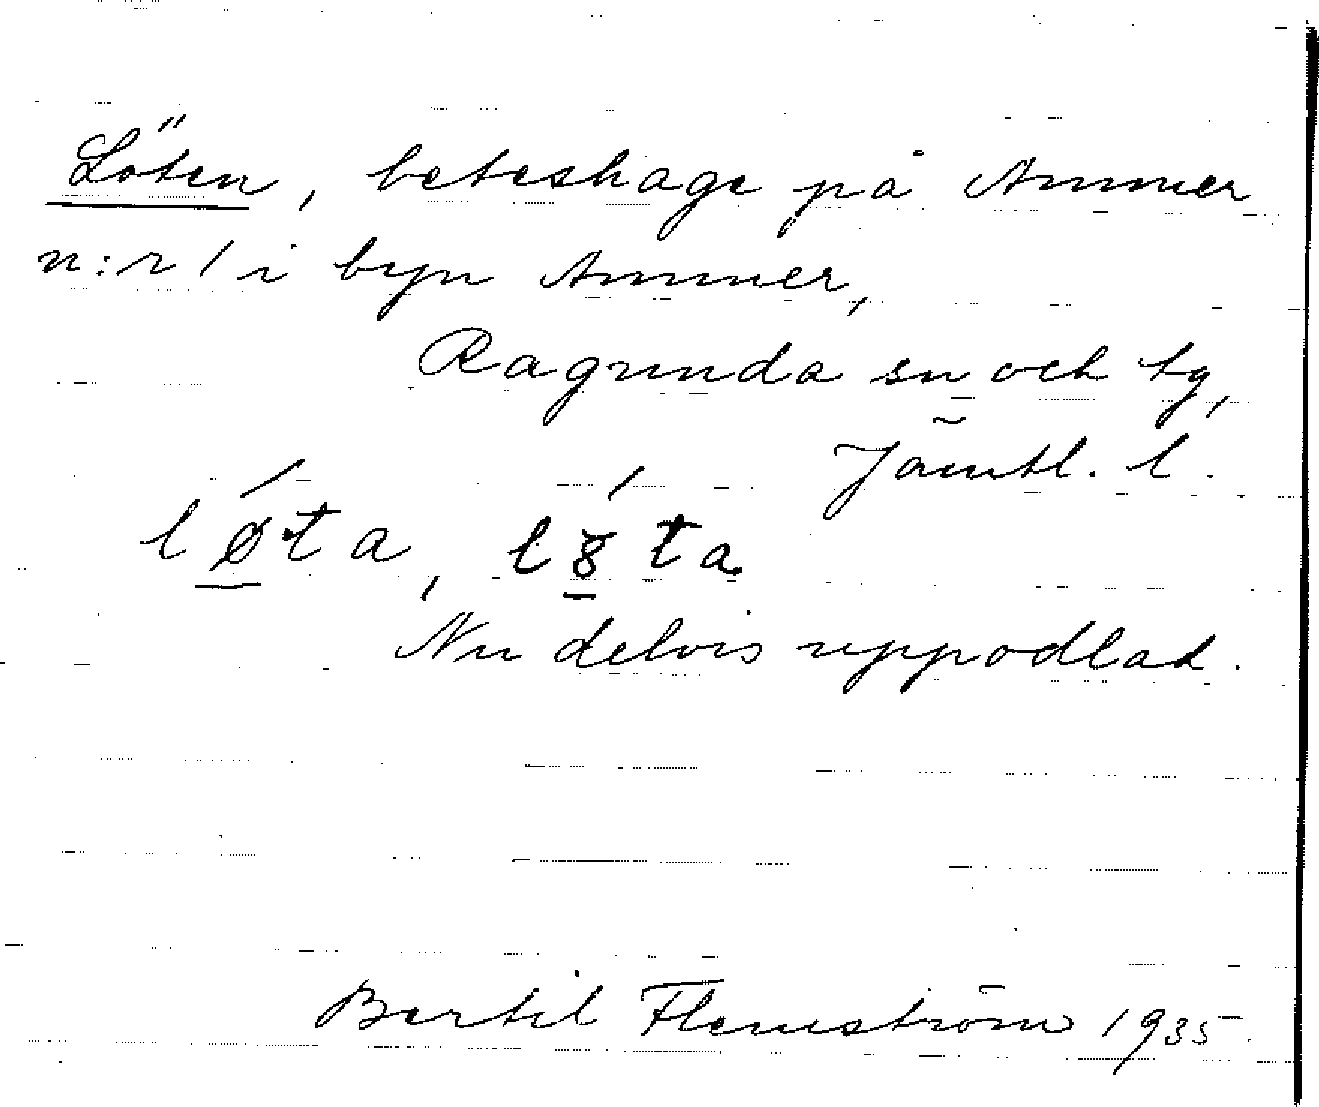 Löten, beteshage på Ammer
n:r 1 i byn Ammer,
Ragunda sn och tg,
Jämtl. l.
lǿ̲ta, l8̲́ta
Nu delvis uppodlad.
Bertil Flemström 1935.